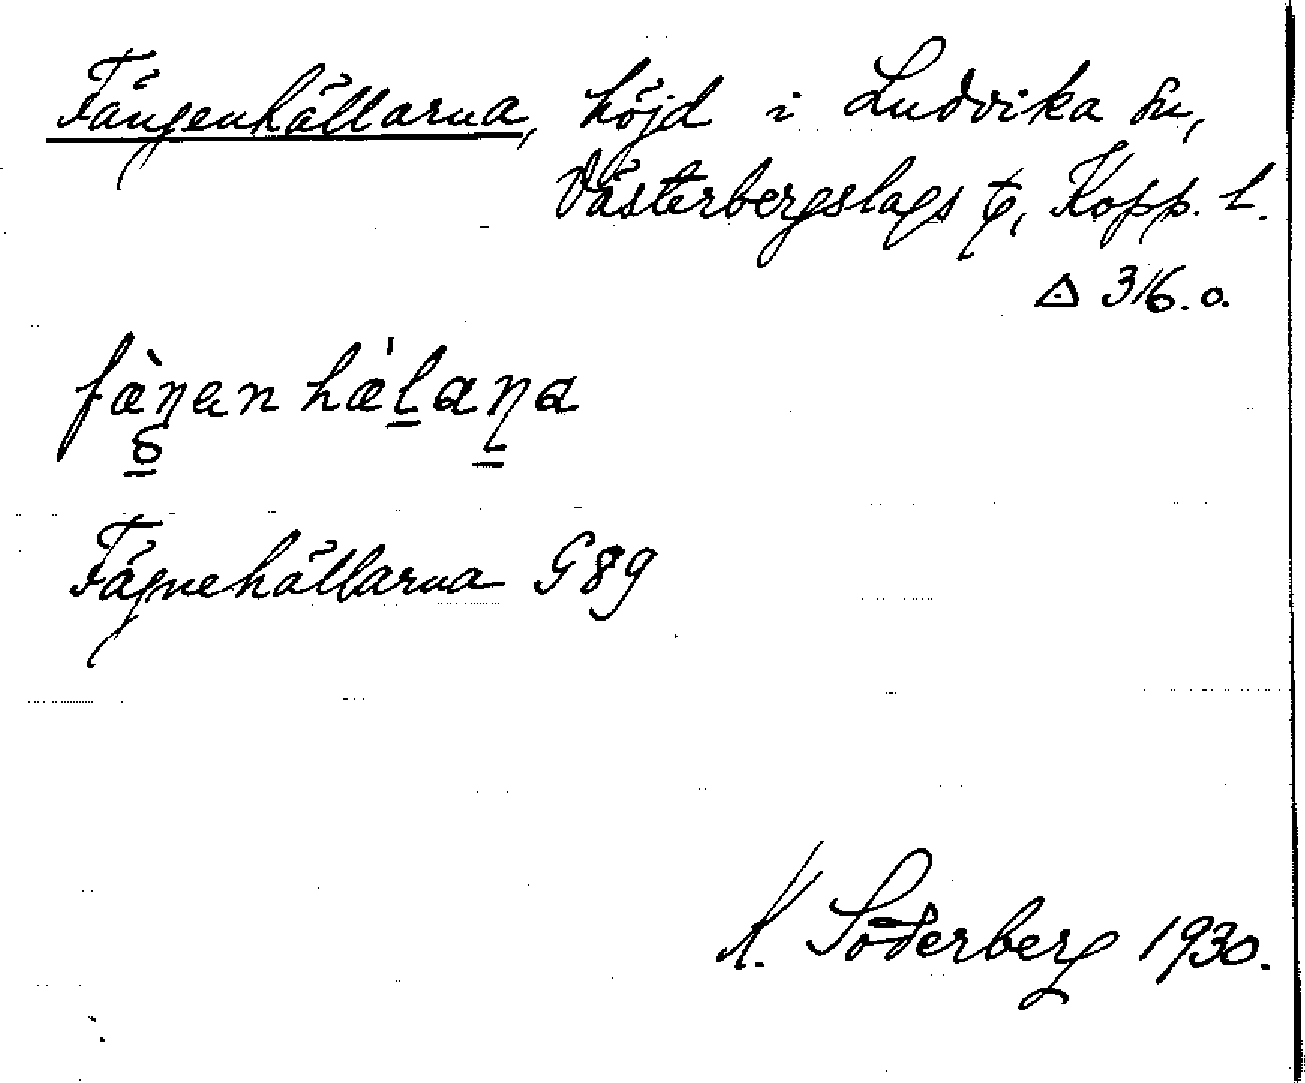 Fängenhällarna, höjd i Ludvika sn,
Västerbergslags tg, Kopp. l.
△ 316.0.
fæ̀ŋen hæ̀ḻaṉa
Fägnehällarna G89
K. Söderberg 1930.